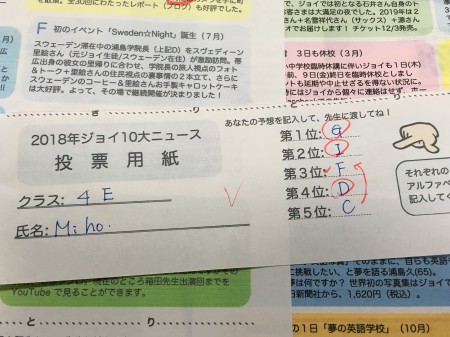 散。全30回にわたったレポート（ブログ）も好評でした。
F 初のイベント「Sweden☆Night」盛況（7月）
スウェーデン滞在中の浦島学院長（上記D）をスヴェディーン
里絵さん（元ジョイ生徒/スウェーデン在住）が激励訪問。帯
広出身の彼女の里帰りに合わせ、学院長の旅人視点のフォト
＆トーク＋里絵さんの住民視点の裏事情の2本立て、さらに
スウェーデンのコーヒー＆里絵さんお手製キャロットケーキ
は大好評。よって、その場で継続開催が決まりました！
で、ジョイでは初となる石井さん自身のト
客さまは大満足の夜でした。2019年は2
さん＋名雪祥代さん（サックス）＋源さん
でお届けします！ チケット12/3発売。
3日も休校（3月）
小中学校臨時休講に伴いジョイも1日(木)
前、9日(金)終日を臨時休校としまし
ントも延期や中止せざるを得ない状況に。
き
り
と
2018年ジョイ10大ニュース
投 票 用 紙
クラス: 4 E
氏名: Miho.
あなたの予想を記入して、先生に渡してね！
第1位: G
第2位: I
第3位: F
第4位: D
第5位: C
それぞれの
アルファベ
記入してく
YouTube で見ることができます。
と
り
に挑戦したい、と夢を語る浦島久(65)。
は何ですか？ 世界初の写真集はジョイで
日新聞社から、1,620円（税込）。
の1日「夢の英語学校」（10月）